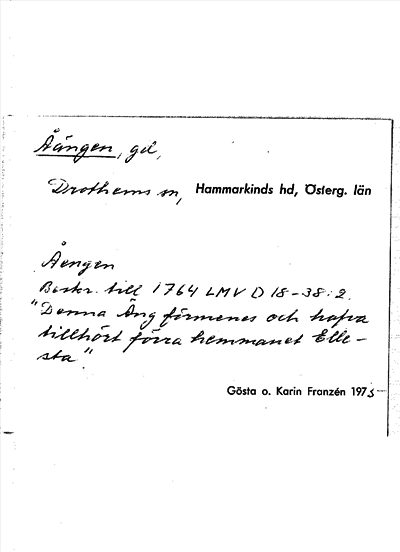 Åängen, gd,
Drothems sn, Hammarkinds hd, Österg. län
Åengen
Beskr. till 1764 LMV D 18-38:2.
"Denna Äng förmenes och hafva
tillhört förra hemmanet Elle-
sta".
Gösta o. Karin Franzén 1975